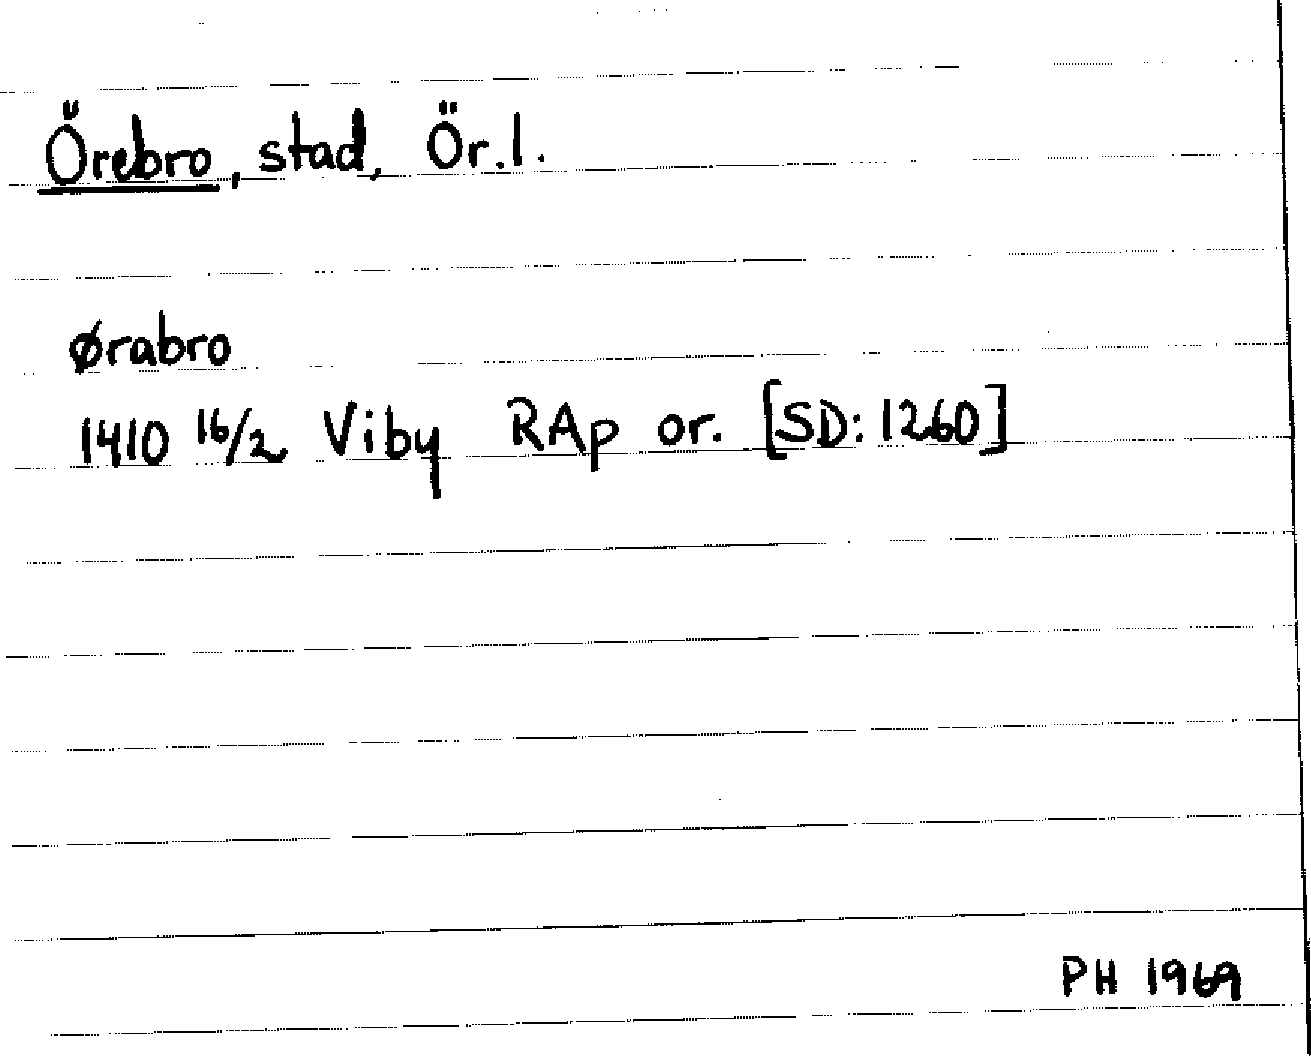 Örebro, stad, Ör.l.
Ørabro
1410 16/2 Viby RAp or. [SD: 1260]
PH 1969